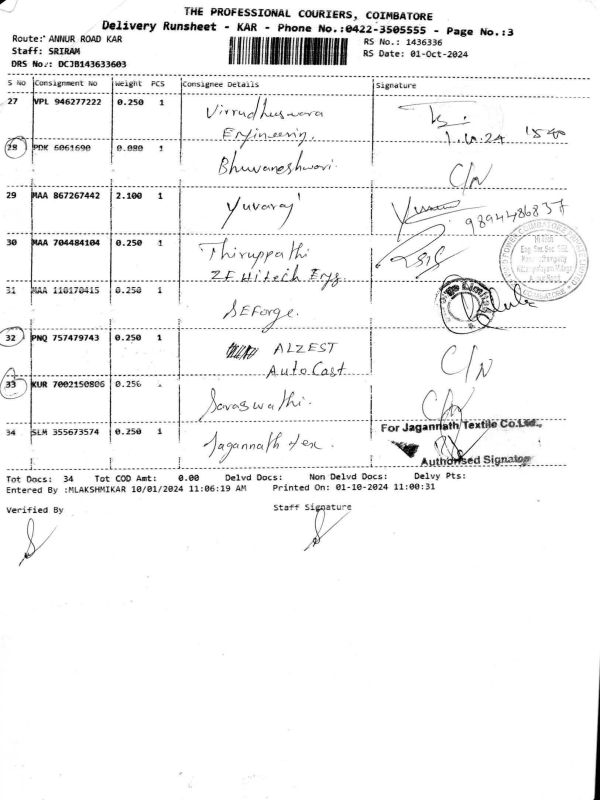 THE PROFESSIONAL COURIERS, COIMBATORE
Delivery Runsheet - KAR - Phone No.:0422-3505555 - Page No.:3
Route: ANNUR ROAD KAR
RS No.: 1436336
Staff: SRIRAM
RS Date: 01-Oct-2024
DRS No.: DCJB143633603
S No Consignment No Weight PCS Consignee Details Signature
27 VPL 946277222 0.250 1 Virrudheeswara
Engineering.
1.10.24
28 PDK 6061690 0.080 1 Bhuvaneshwari. C/N
29 MAA 867267442 2.100 1 Yuvaraj
9894486837
30 MAA 704484104 0.250 1 Thiruppathi
ZF Hitech Engg
31 MAA 110170415 0.250 1 SEForge.
32 PNQ 757479743 0.250 1 ALZEST
Auto Cast C/N
33 KUR 7002150806 0.256 Saraswathi. C/N
34 SLM 355673574 0.250 1 Jagannath tex.
For Jagannath Textile Co.Ltd.,
Authorised Signator
Tot Docs: 34 Tot COD Amt: 0.00 Delvd Docs: Non Delvd Docs: Delvy Pts:
Entered By :MLAKSHMIKAR 10/01/2024 11:06:19 AM Printed On: 01-10-2024 11:00:31
Verified By Staff Signature